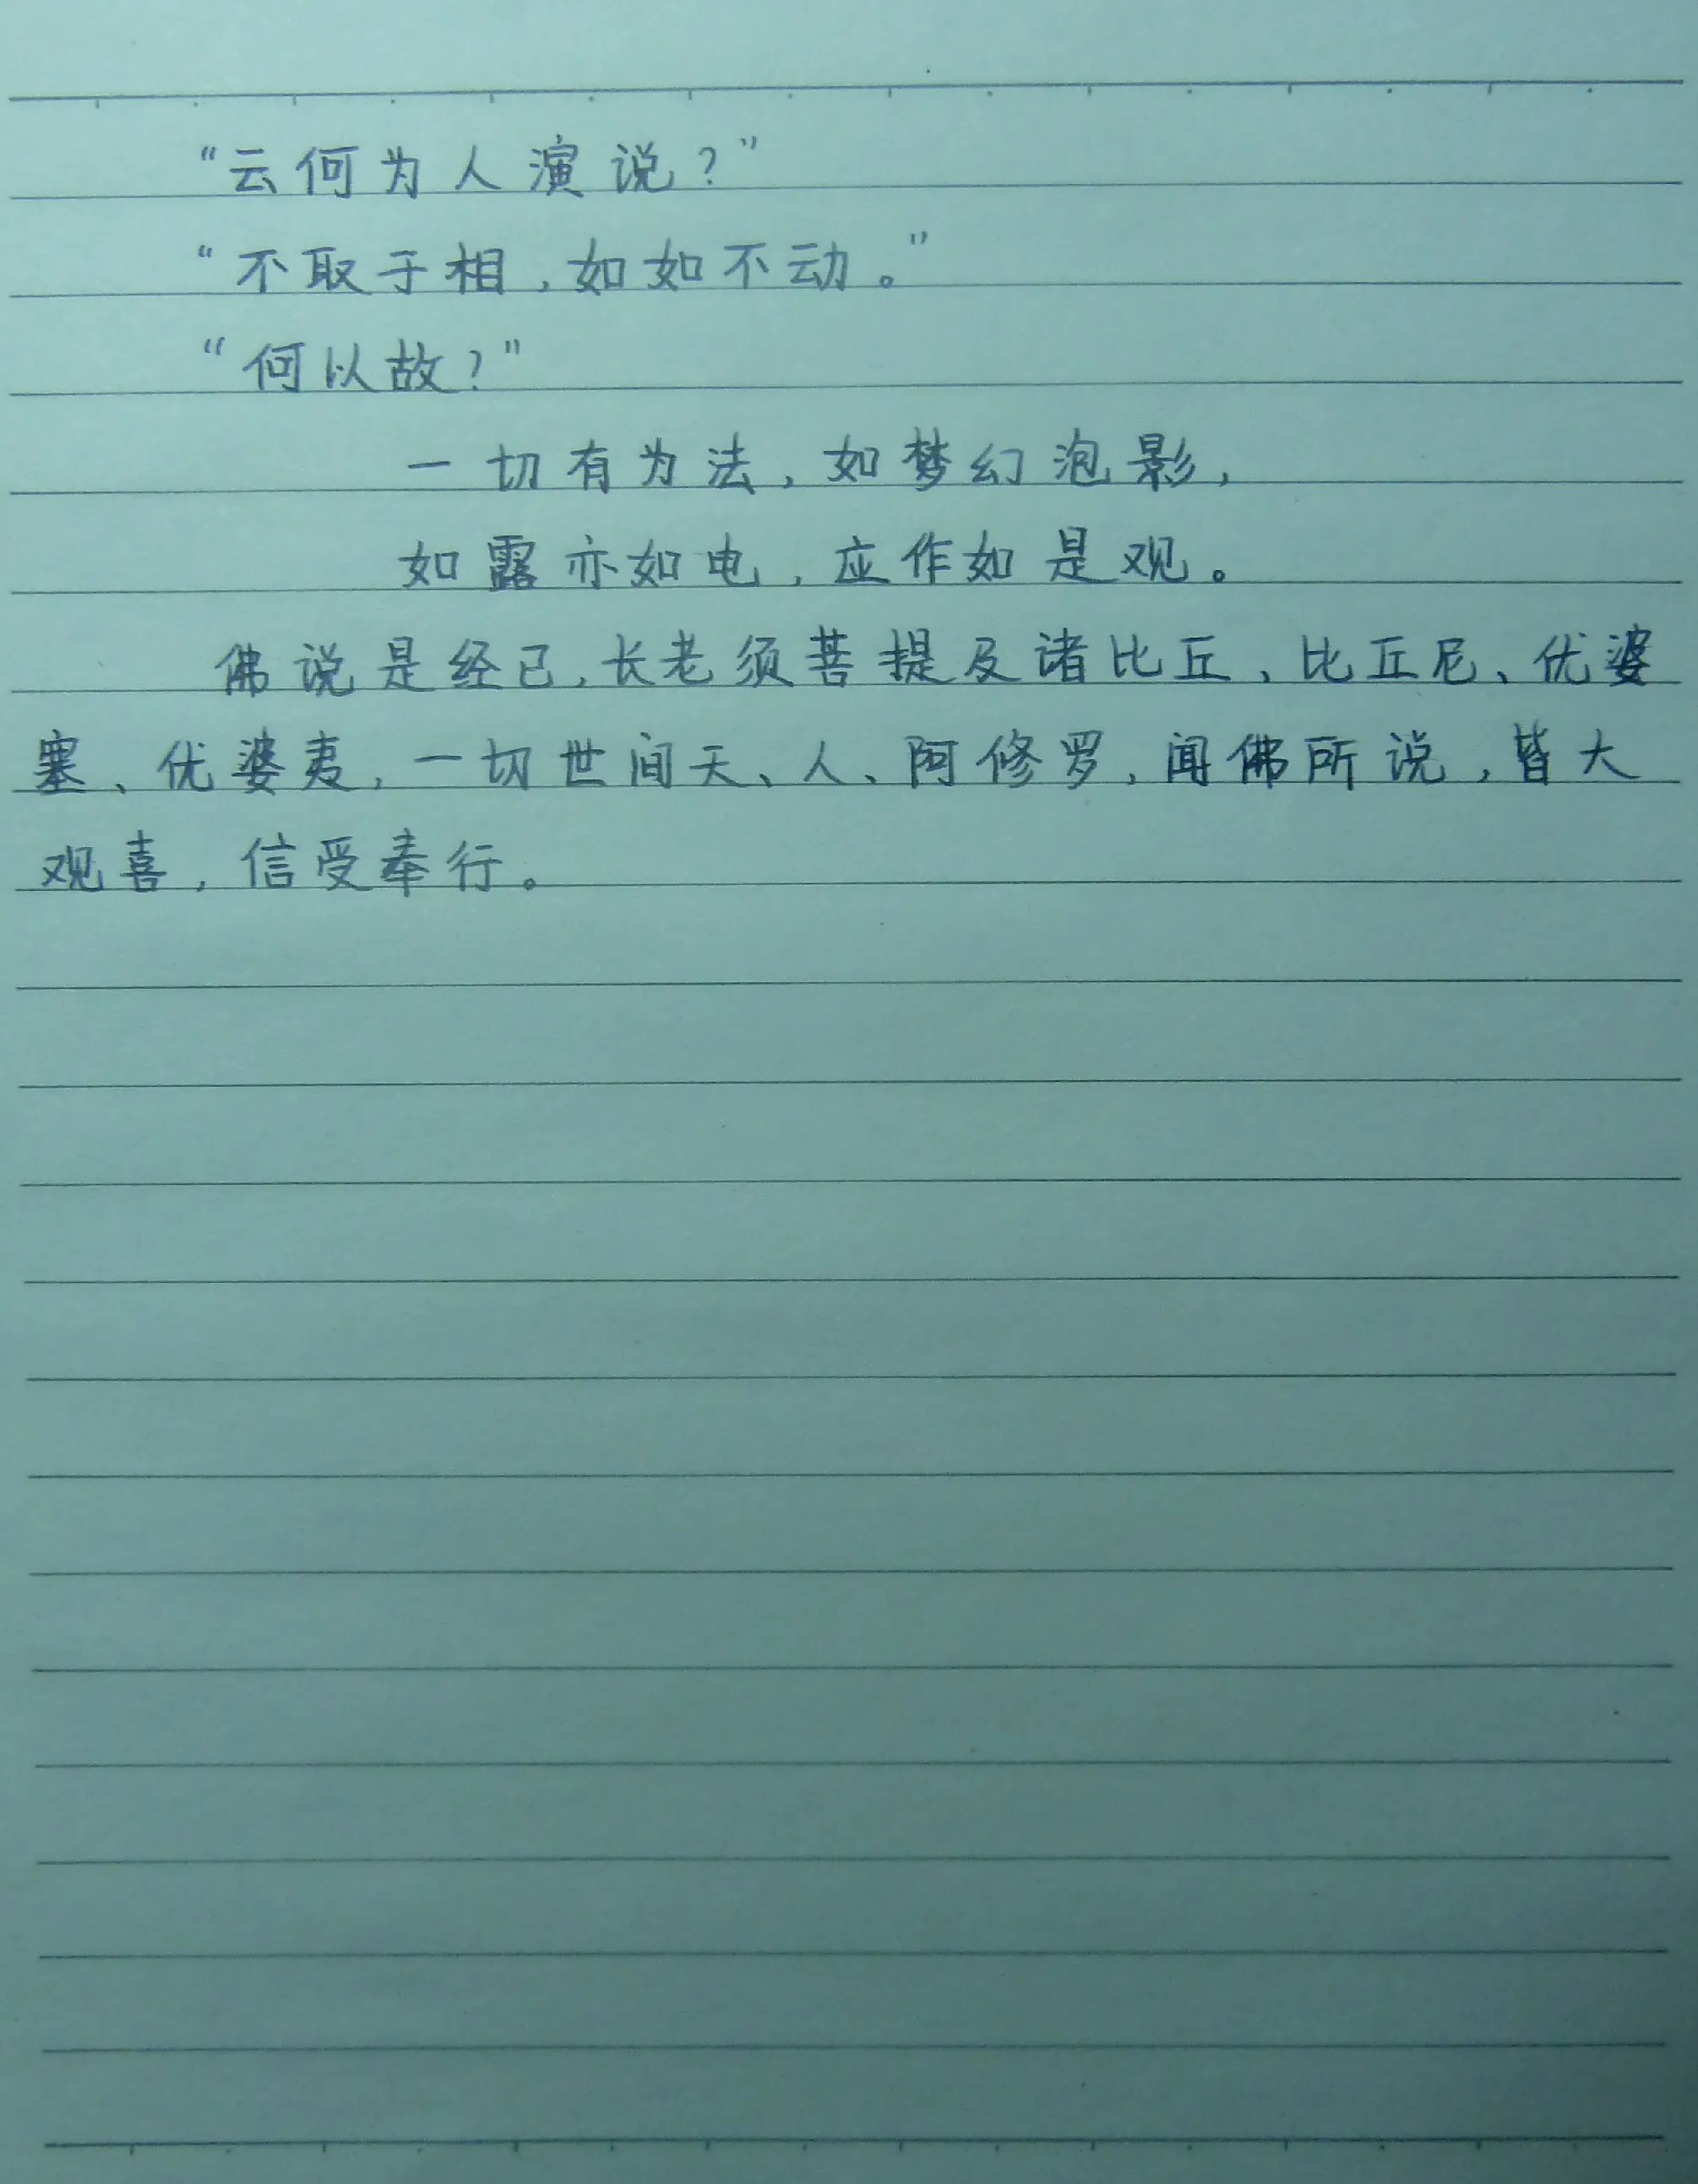 “云何为人演说？”
“不取于相，如如不动。”
“何以故？”
一切有为法，如梦幻泡影，
如露亦如电，应作如是观。
佛说是经已，长老须菩提及诸比丘、比丘尼、优婆
塞、优婆夷，一切世间天、人、阿修罗，闻佛所说，皆大
观喜，信受奉行。